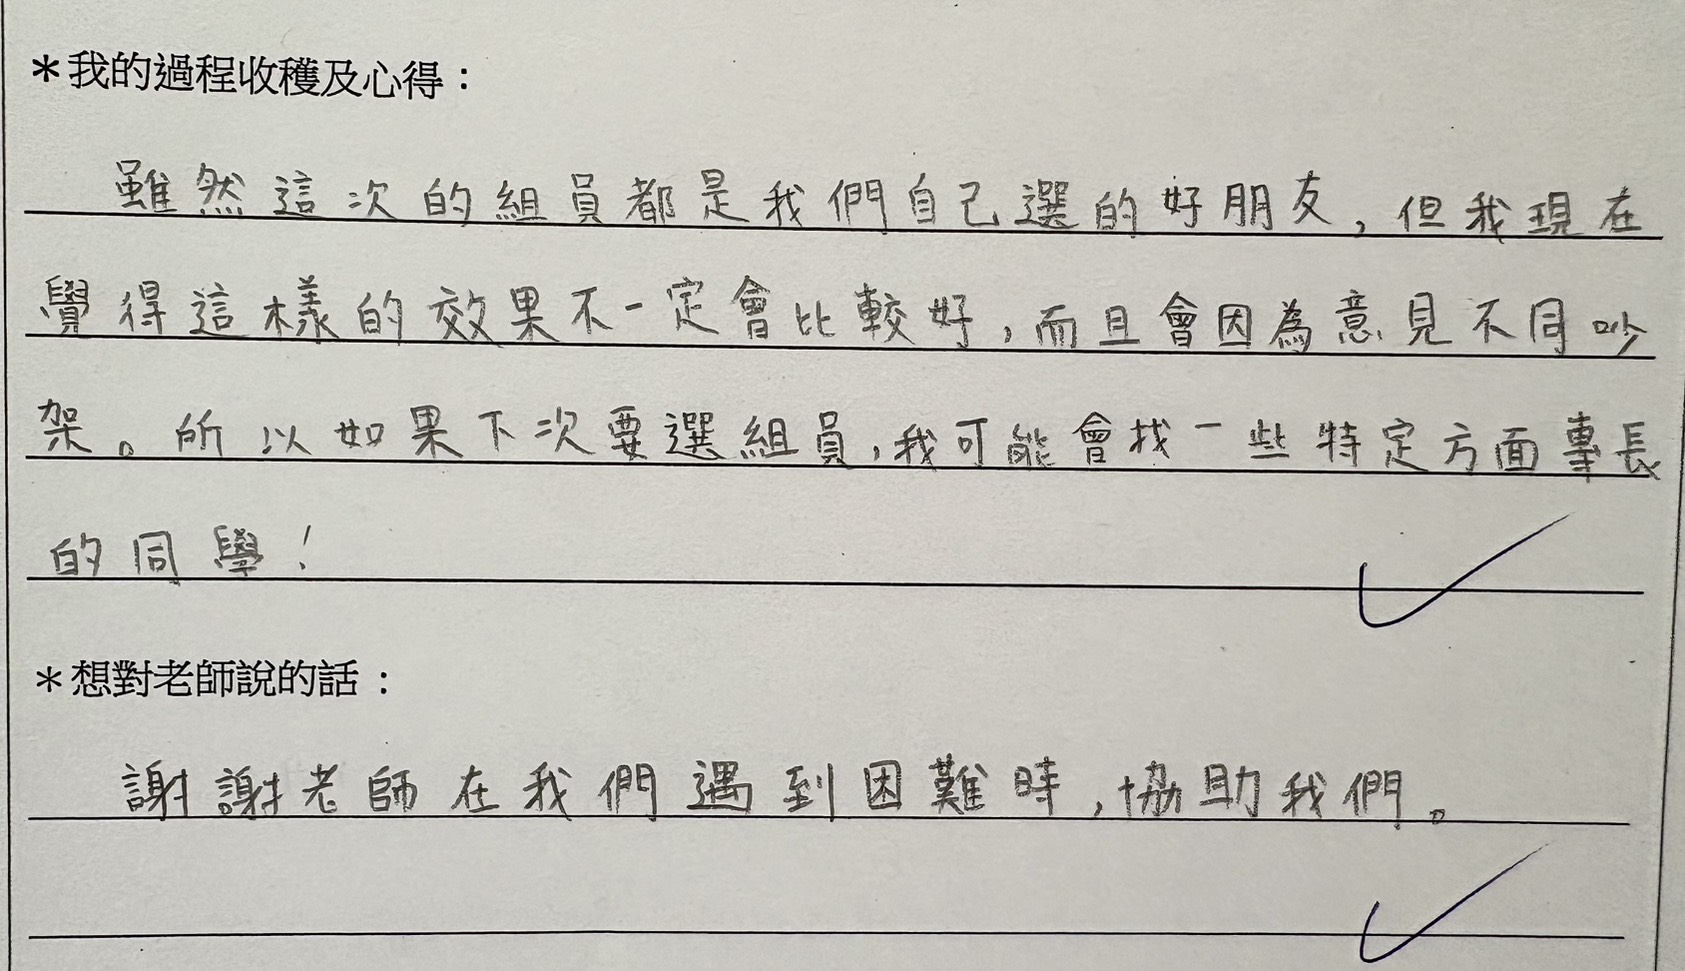 ＊我的過程收穫及心得：
雖然這次的組員都是我們自己選的好朋友，但我現在
覺得這樣的效果不一定會比較好，而且會因為意見不同吵
架。所以如果下次要選組員，我可能會找一些特定方面專長
的同學！
＊想對老師說的話：
謝謝老師在我們遇到困難時，協助我們。